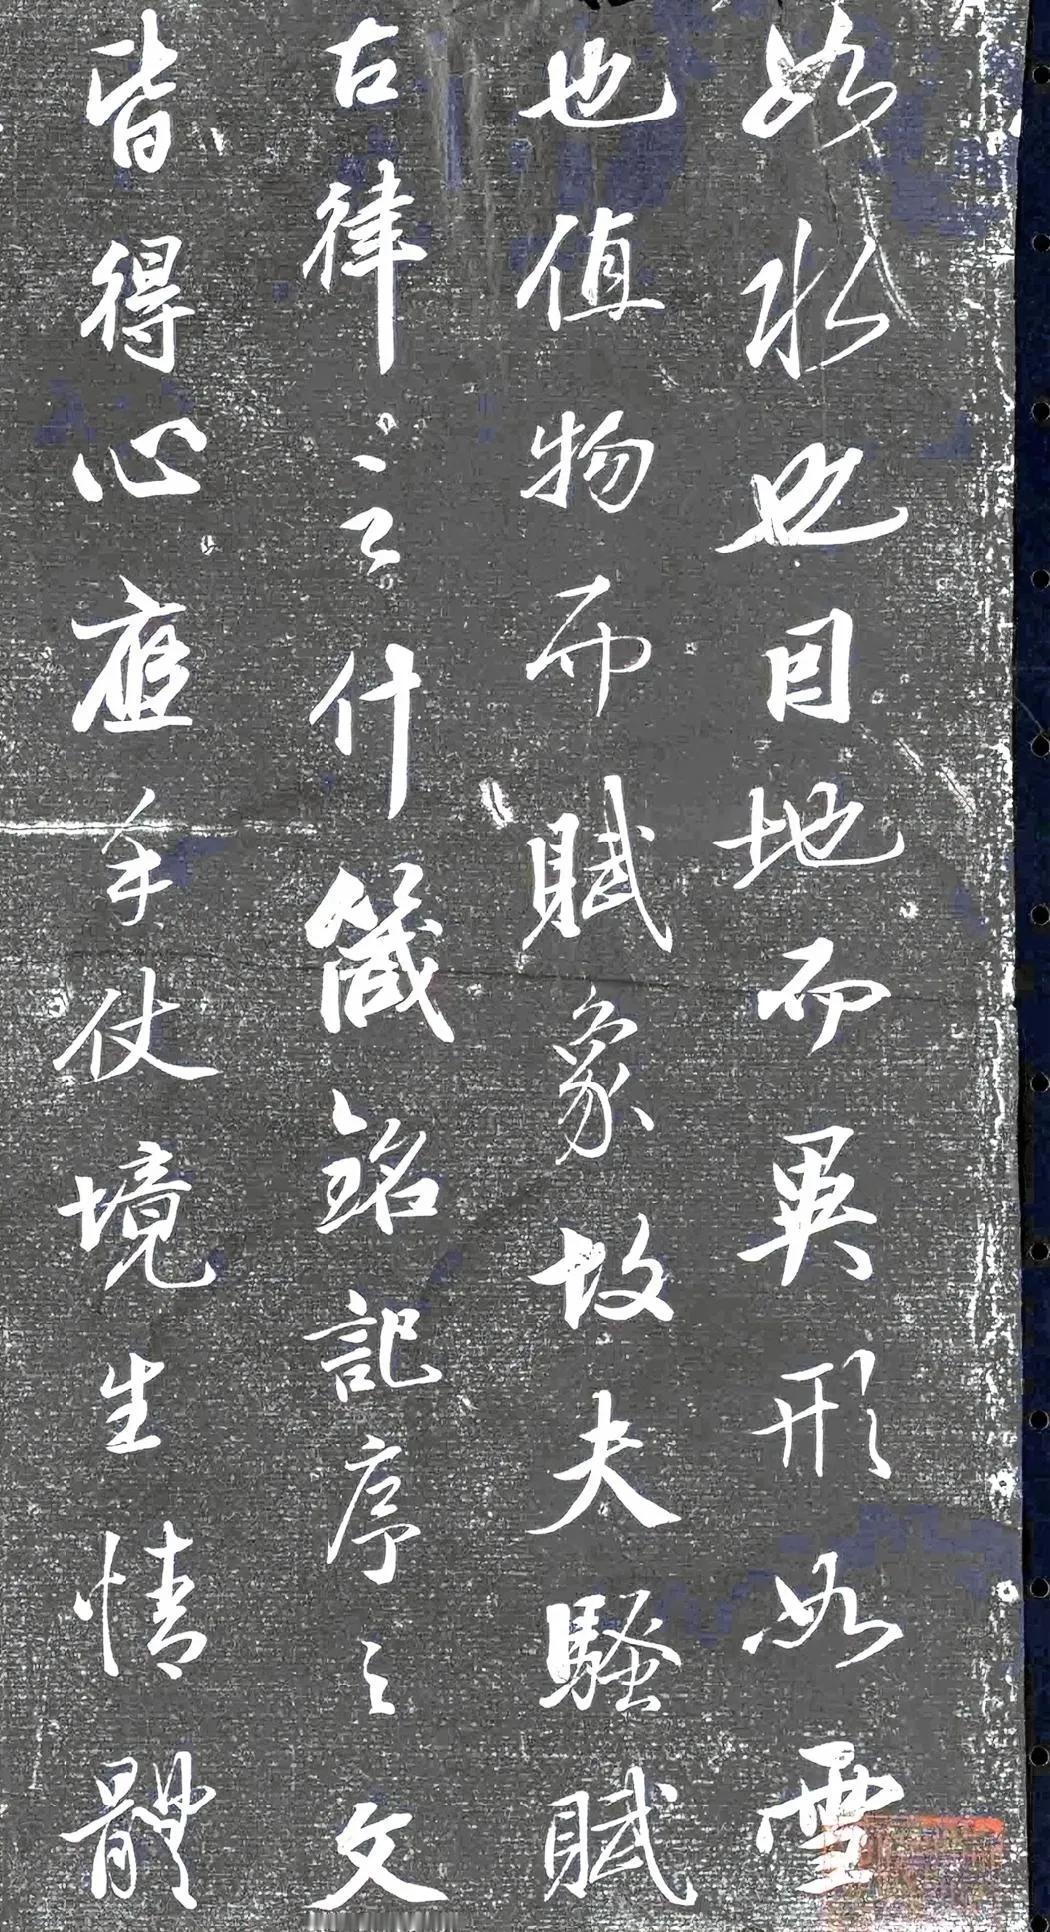 如水也因地而異形如雲
也值物而賦象故夫騷賦
古律之什箴銘記序之文
皆得心應手仗境生情體